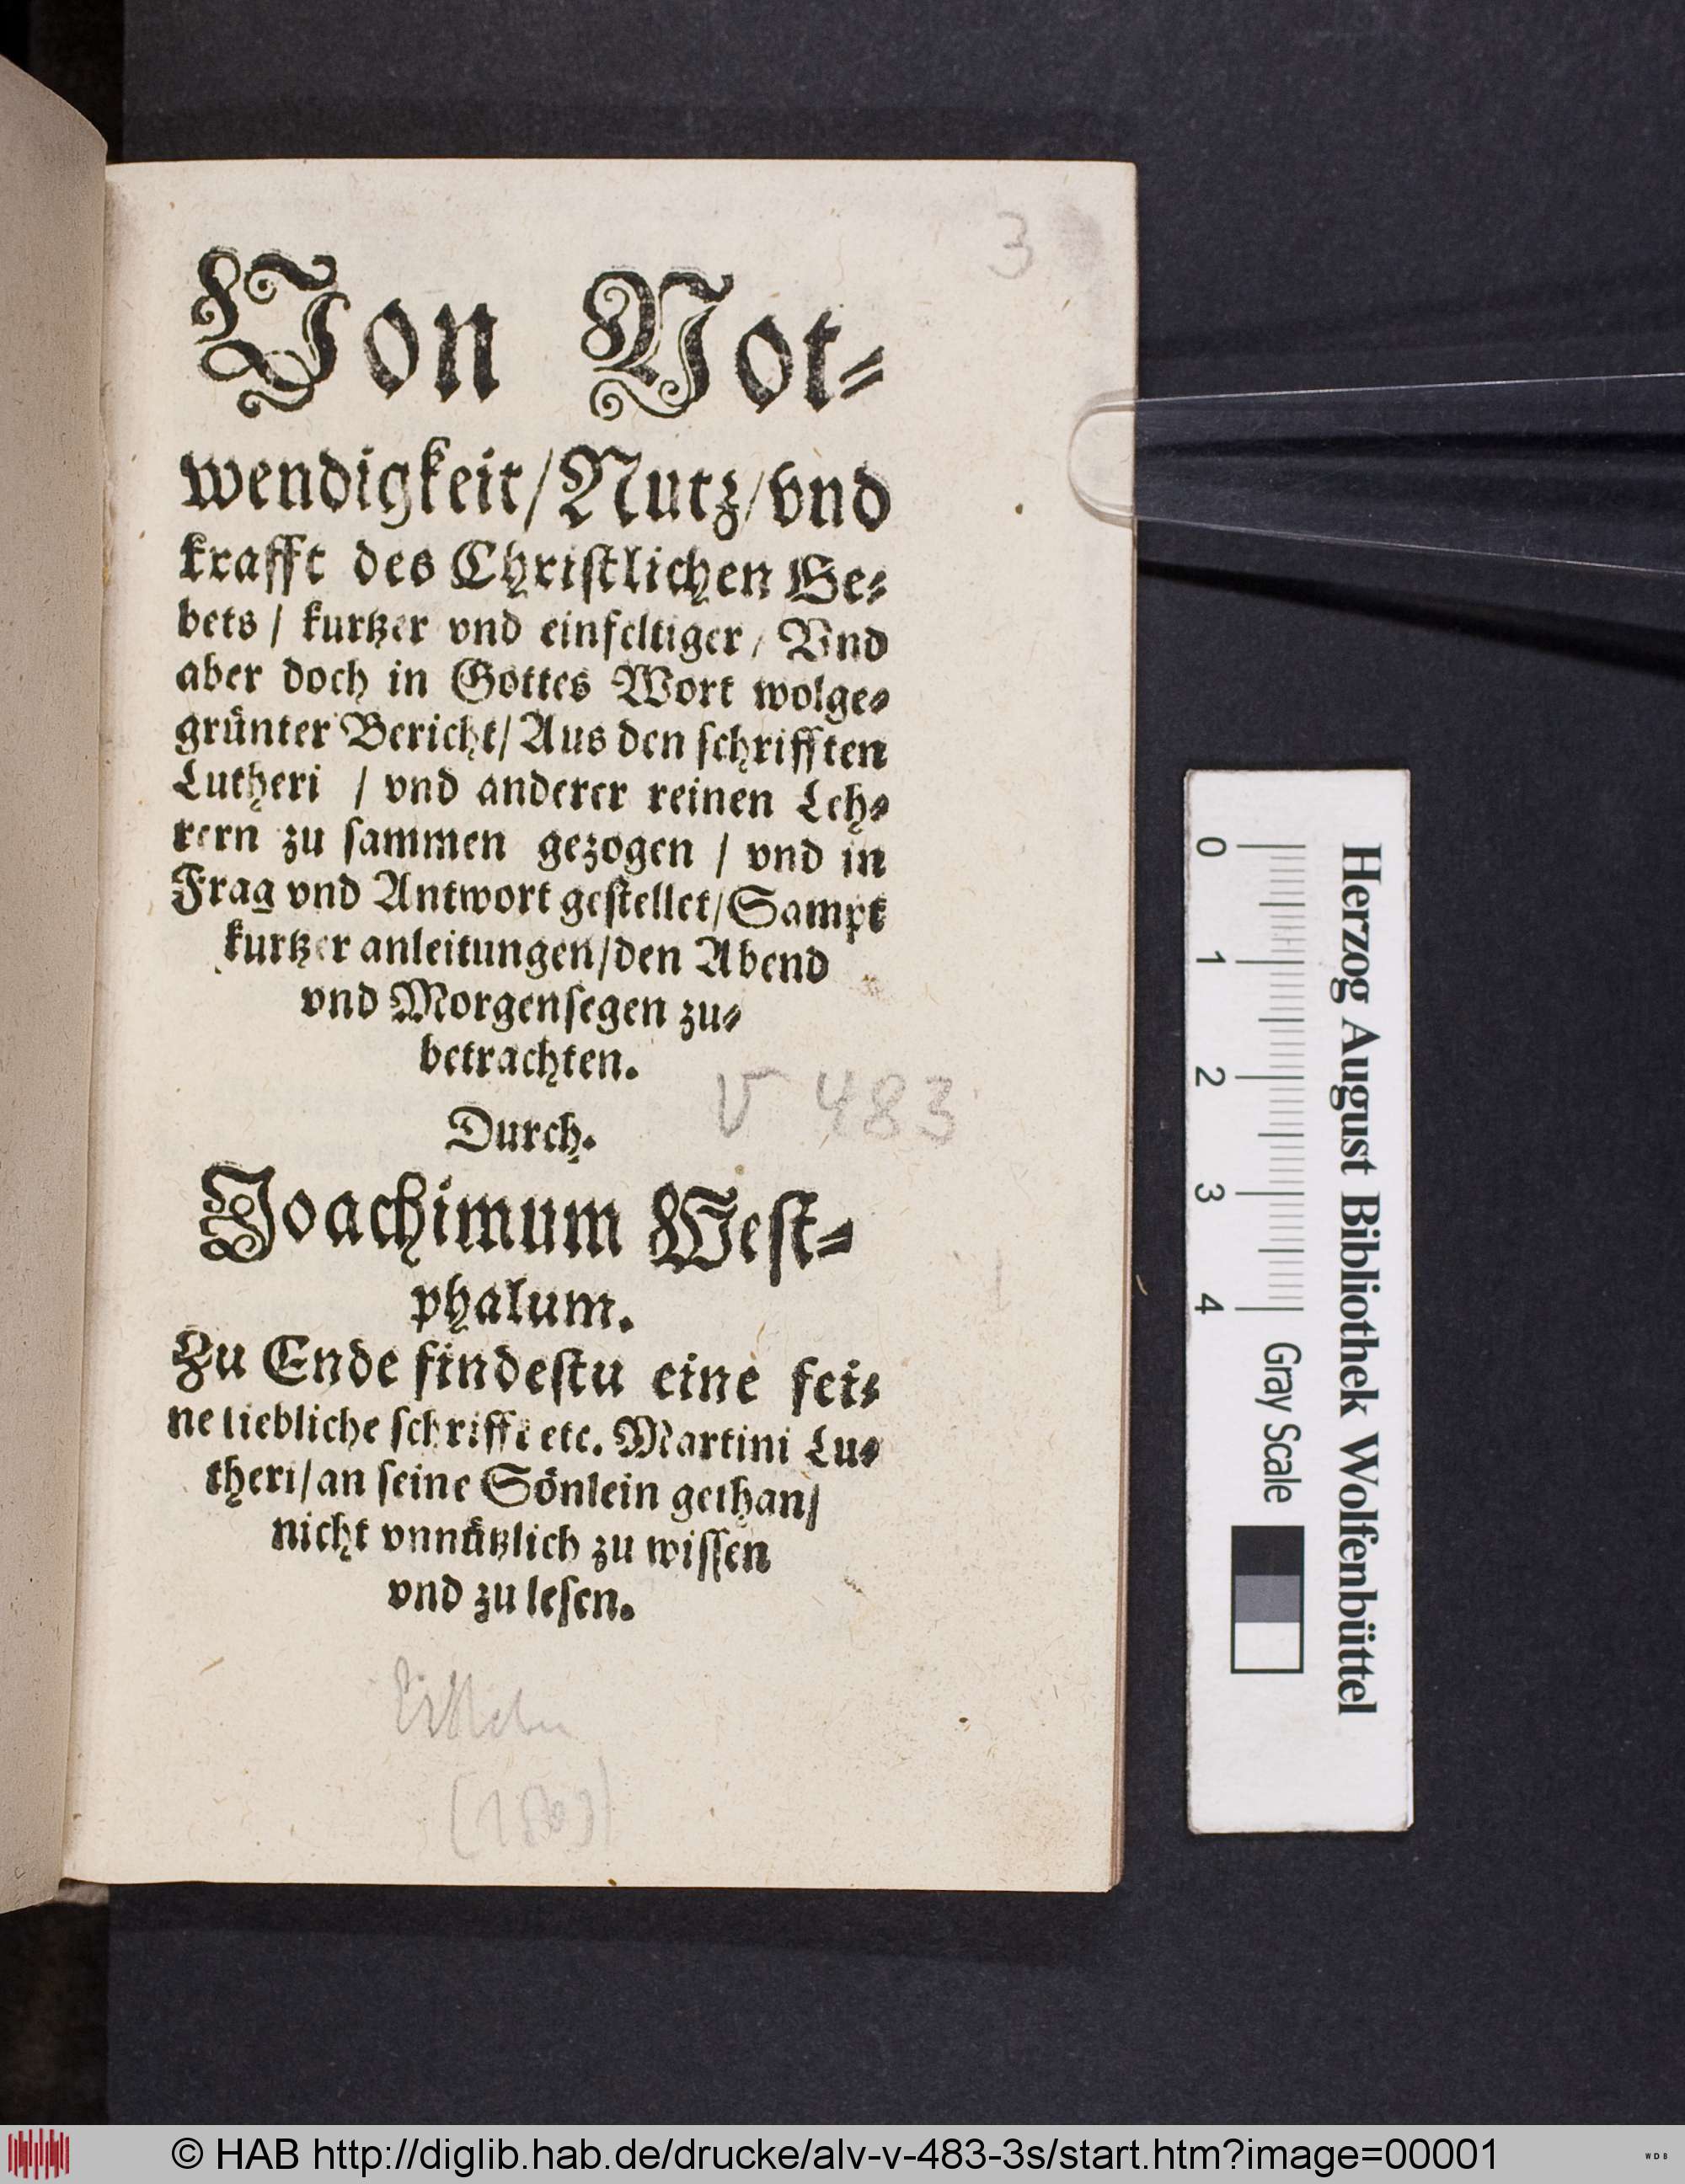 3
Von Not⸗
wendigkeit/Nutz/vnd
krafft des Christlichen Ge⸗
bets / kurtzer vnd einfeltiger / Vnd
aber doch in Gottes Wort wolge⸗
grünter Bericht/ Aus den schrifften
Lutheri / vnd anderer reinen Leh⸗
rern zu sammen gezogen / vnd in
Frag vnd Antwort gestellet/ Sampt
kurtzer anleitungen/den Abend
vnd Morgensegen zu⸗
betrachten.
V 483
Durch.
Joachimum West⸗
phalum.
Zu Ende findestu eine fei⸗
ne liebliche schrifft etc. Martini Lu⸗
theri/an seine Sönlein gethan/
nicht vnnützlich zu wissen
vnd zu lesen.
Herzog August Bibliothek Wolfenbüttel
0 1 2 3 4 Gray Scale
© HAB http://diglib.hab.de/drucke/alv-v-483-3s/start.htm?image=00001
WDB